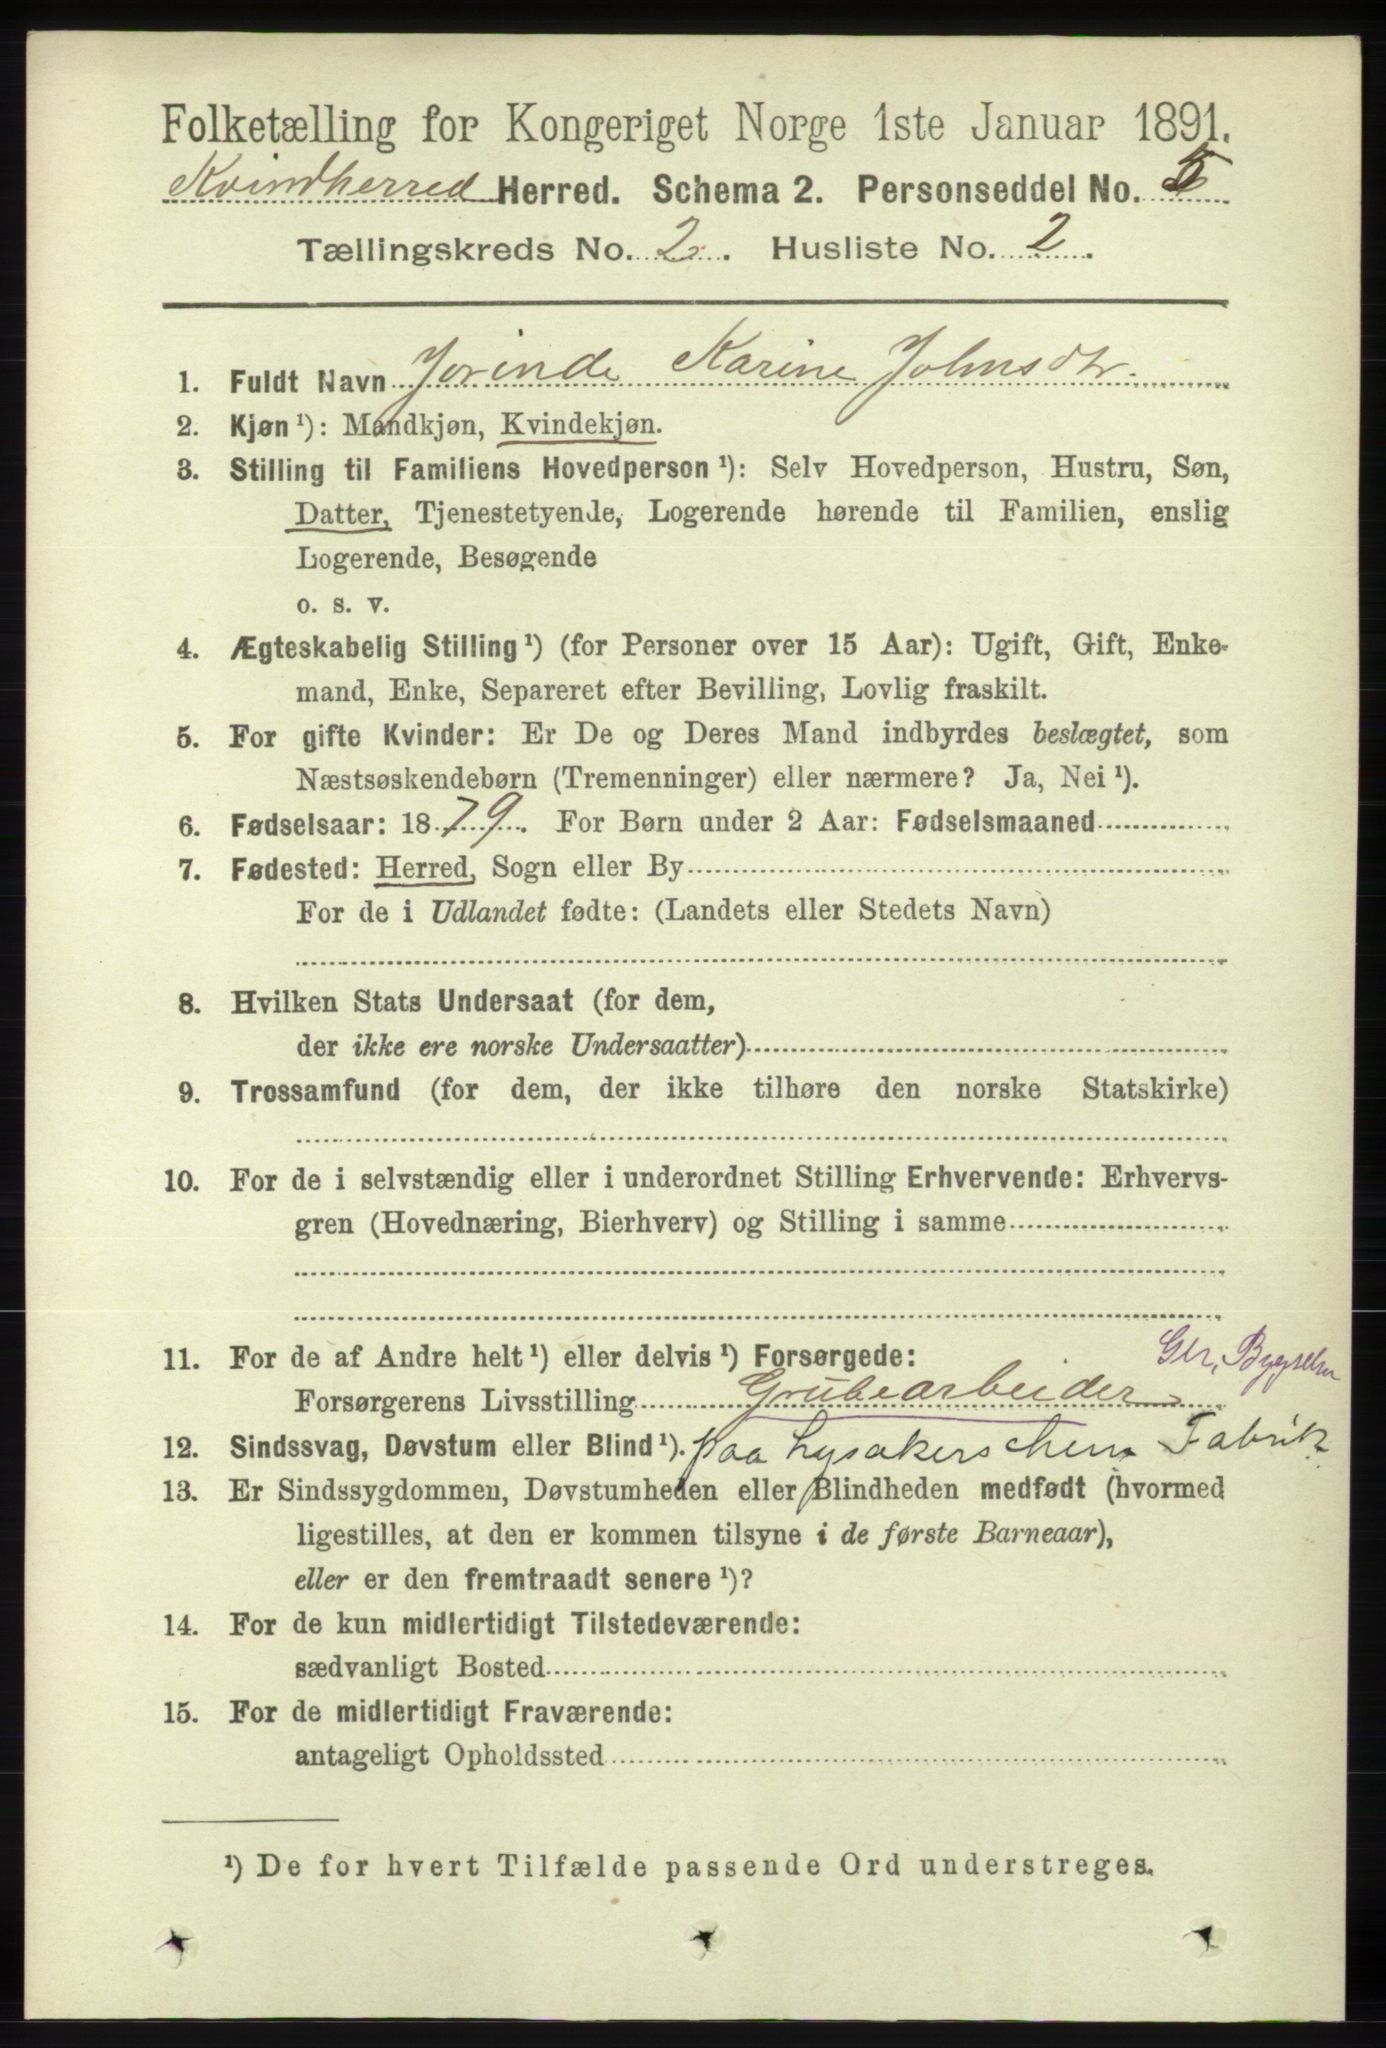 Folketælling for Kongeriget Norge 1ste Januar 1891.
Kvindherred Herred. Schema 2. Personseddel No. 5
Tællingskreds No. 2. Husliste No. 2.
1. Fuldt Navn Jorinde Karine Johnsdtr.
2. Kjøn ¹): Mandkjøn, Kvindekjøn.
3. Stilling til Familiens Hovedperson ¹): Selv Hovedperson, Hustru, Søn,
Datter, Tjenestetyende, Logerende hørende til Familien, enslig
Logerende, Besøgende
o. s. v.
4. Ægteskabelig Stilling ¹) (for Personer over 15 Aar): Ugift, Gift, Enke-
mand, Enke, Separeret efter Bevilling, Lovlig fraskilt.
5. For gifte Kvinder: Er De og Deres Mand indbyrdes beslægtet, som
Næstsøskendebørn (Tremenninger) eller nærmere? Ja, Nei ¹).
6. Fødselsaar: 1879. For Børn under 2 Aar: Fødselsmaaned
7. Fødested: Herred, Sogn eller By
For de i Udlandet fødte: (Landets eller Stedets Navn)
8. Hvilken Stats Undersaat (for dem,
der ikke ere norske Undersaatter)
9. Trossamfund (for dem, der ikke tilhøre den norske Statskirke)
10. For de i selvstændig eller i underordnet Stilling Erhvervende: Erhvervs-
gren (Hovednæring, Bierhverv) og Stilling i samme
11. For de af Andre helt ¹) eller delvis ¹) Forsørgede:
Forsørgerens Livsstilling Grubearbeider
12. Sindssvag, Døvstum eller Blind ¹). paa Lysakers chem Fabrik
13. Er Sindssygdommen, Døvstumheden eller Blindheden medfødt (hvormed
ligestilles, at den er kommen tilsyne i de første Barneaar),
eller er den fremtraadt senere ¹)?
14. For de kun midlertidigt Tilstedeværende:
sædvanligt Bosted
15. For de midlertidigt Fraværende:
antageligt Opholdssted
¹) De for hvert Tilfælde passende Ord understreges.